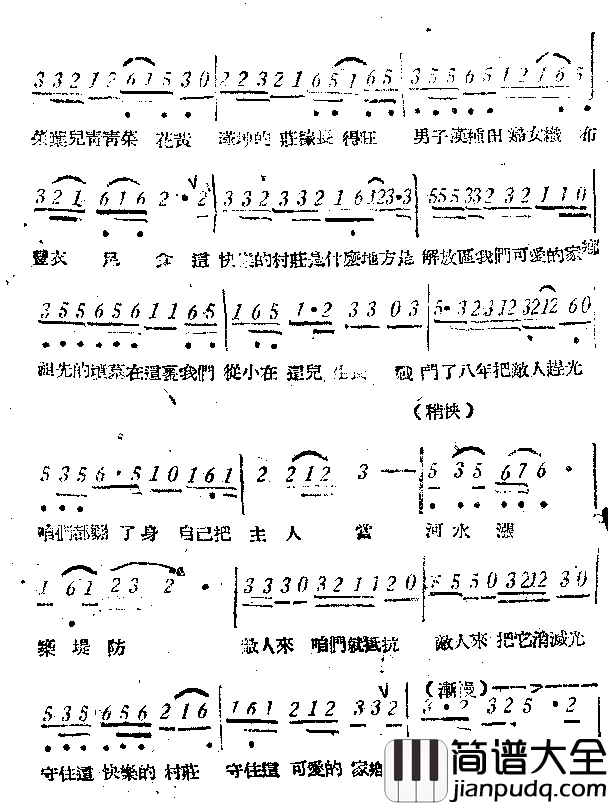 3 3 2 1 2 6 1 5 3 0 | 2 2 3 2 1 6 5 1 6 5 | 3 5 5 6 5 1 2 1 6 5
菜葉兒靑靑菜 花黃 的莊稼長得旺 男子漢種田 婦女織布
3 2 1 6 1 6 2 · 2 | 3 3 2 3 3 2 1 6 1 2 3 · 3 | 5 5 5 3 3 2 3 2 1 1 0
豐衣 足 食 這 快樂的村莊是什麼地方是 解放區我們可愛的家鄉
3 5 5 6 5 6 1 1 6 5 | 1 6 5 1 · 2 3 3 0 3 | 5 · 3 2 3 1 2 3 2 1 2 6 0
祖先的墳墓在這裏我們 從小在這兒 生長 戰 鬥了八年把敵人趕光
(稍快)
5 3 5 6 · 5 1 0 1 6 1 | 2 2 1 2 3 — | 5 3 5 6 7 6 ·
咱們都翻 了身 自己把 主 人 當 河水漲
1 6 1 2 3 2 · | 3 3 3 0 3 2 1 1 2 0 | 5 5 5 0 3 2 1 2 3 0
築堤防 敵人來 咱們就抵抗 敵人來 把它消滅光
(漸慢)
5 3 5 6 5 6 2 1 6 | 1 6 1 2 1 2 3 3 2 | 3 · 2 3 2 5 · 2
守住這 快樂的 村莊 守住這 可愛的 家鄉
简谱大全
www.jianpudq.com